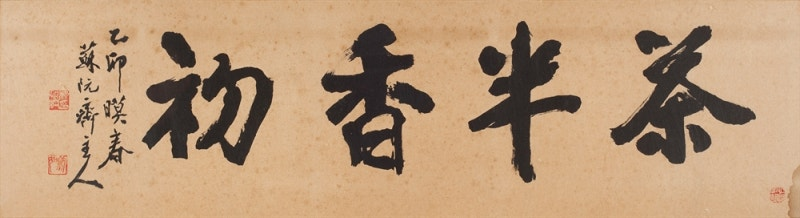 茶半香初
乙卯暮春
蘇阮齋主人